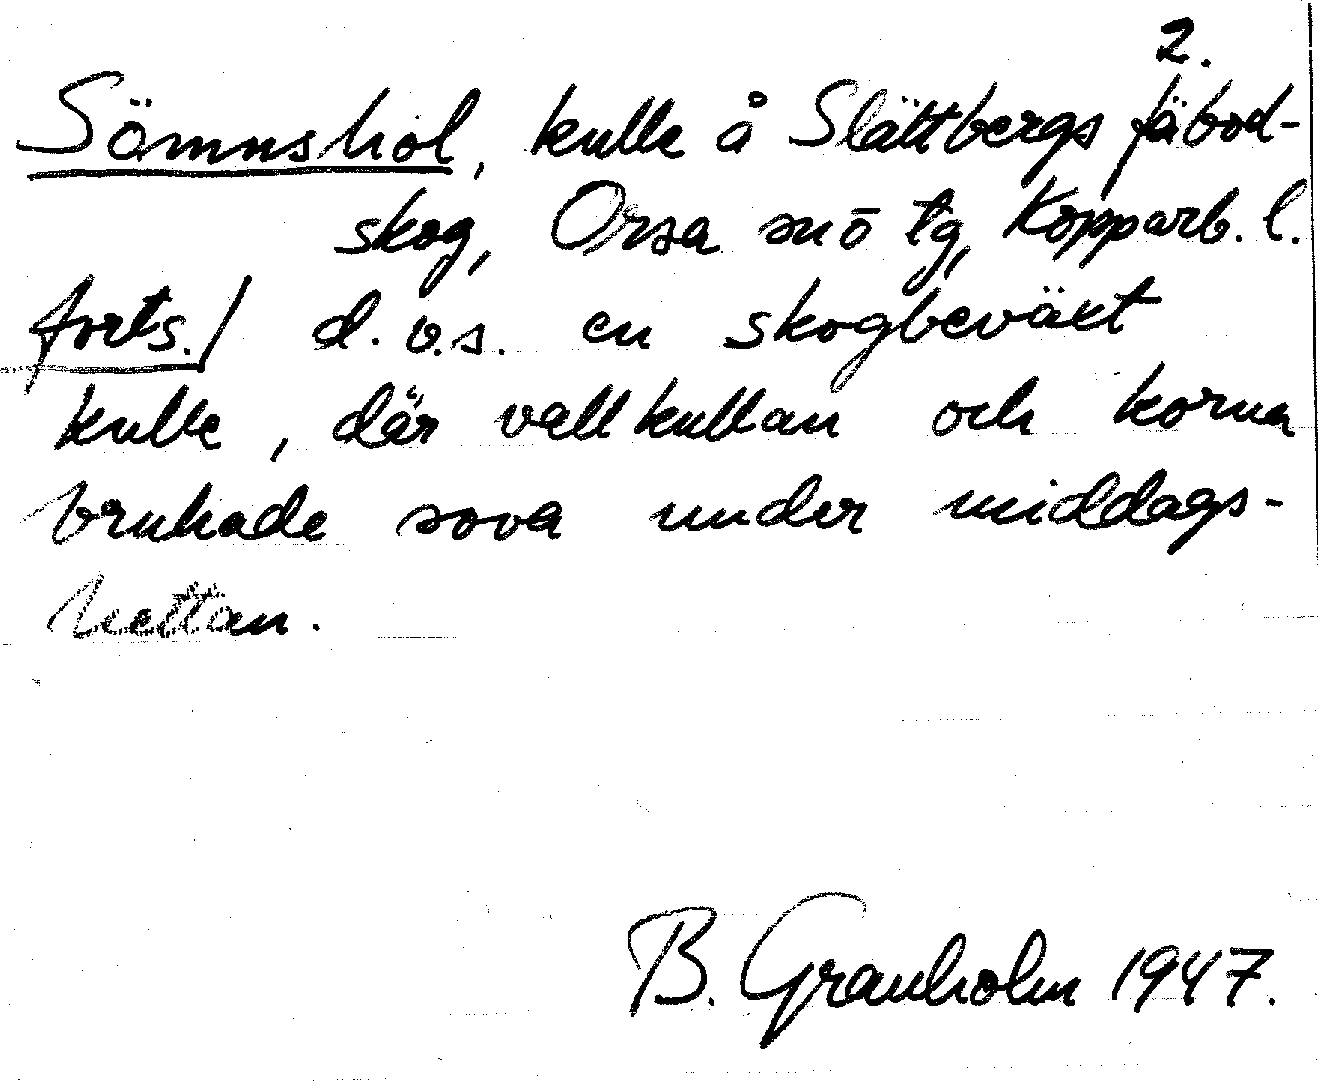 2.
Sömnshol, kulle å Slättbergs fäbod-
skog, Orsa snö tg, Kopparb. l.
forts./ d.v.s. en skogbeväxt
kulle, där vallkullan och korna
brukade sova under middags-
hettan.
B. Granholm 1947.